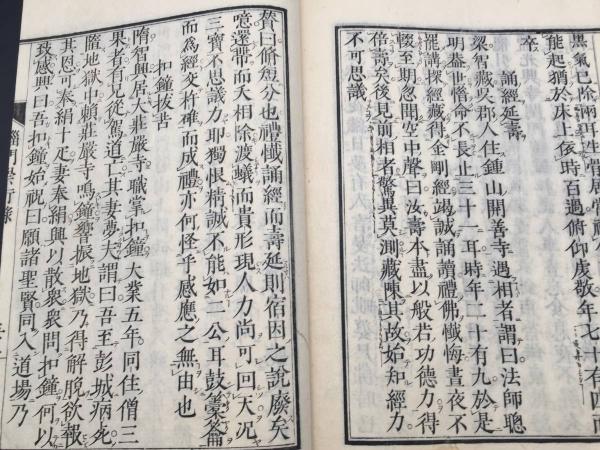 黑氣已除兩耳生骨居常見佛七十有四而
能起猶於床上依時百過俯仰虔敬年七十有四而
卒
誦經延壽
梁智藏吳郡人住鍾山開善寺遇相者謂曰法師聰
明蓋世惜命不長止三十一耳時年二十有九於是
罷講探經藏得金剛經竭誠誦讀禮佛懺悔晝夜不
輟至期忽聞空中聲曰汝壽本盡以般若功德力得
倍壽矣後見前相者驚異莫測藏陳其故始知經力
不可思議
贊曰脩短分也禮懺誦經而壽延則宿因之說廢矣
噫還帶而夭相除渡蟻而貴形現人力尚可回天況
三寶不思議力耶獨恨精誠不能如二公耳鼓橐籥
而為經交杵碓而成禮亦何怪乎感應之無由也
扣鐘拔苦
隋智興居大莊嚴寺職掌扣鐘大業五年同住僧三
果者有兄從駕道亡其妻夢夫謂曰吾至彭城病死
墮地獄中賴莊嚴寺鳴鐘響振地獄乃得解脫欲報
其恩可奉絹十疋妻奉絹興以散眾眾問扣鐘何以
致感興曰吾扣鐘始祝曰願諸聖賢同入道場乃
緇門崇行錄